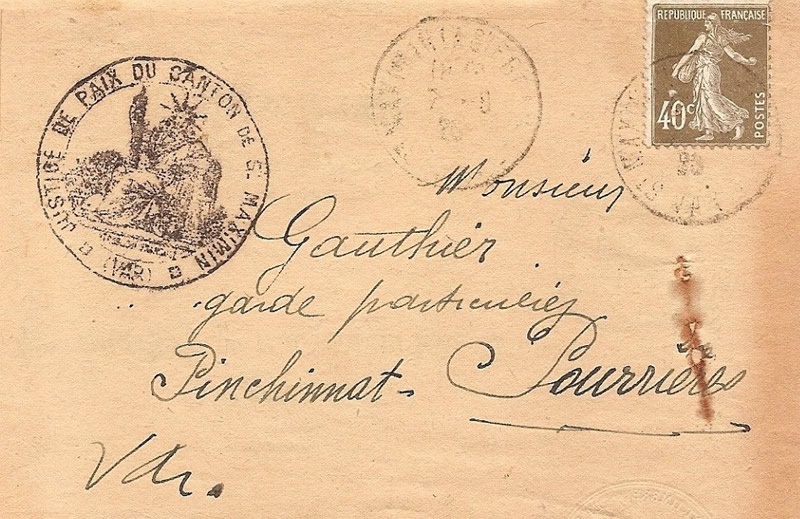 JUSTICE DE PAIX DU CANTON DE St MAXIMIN
(VAR)
REPUBLIQUE FRANÇAISE
40c
POSTES
Monsieur
Gauthier
garde particulier
Pinchinnat - Pourrières
Var.